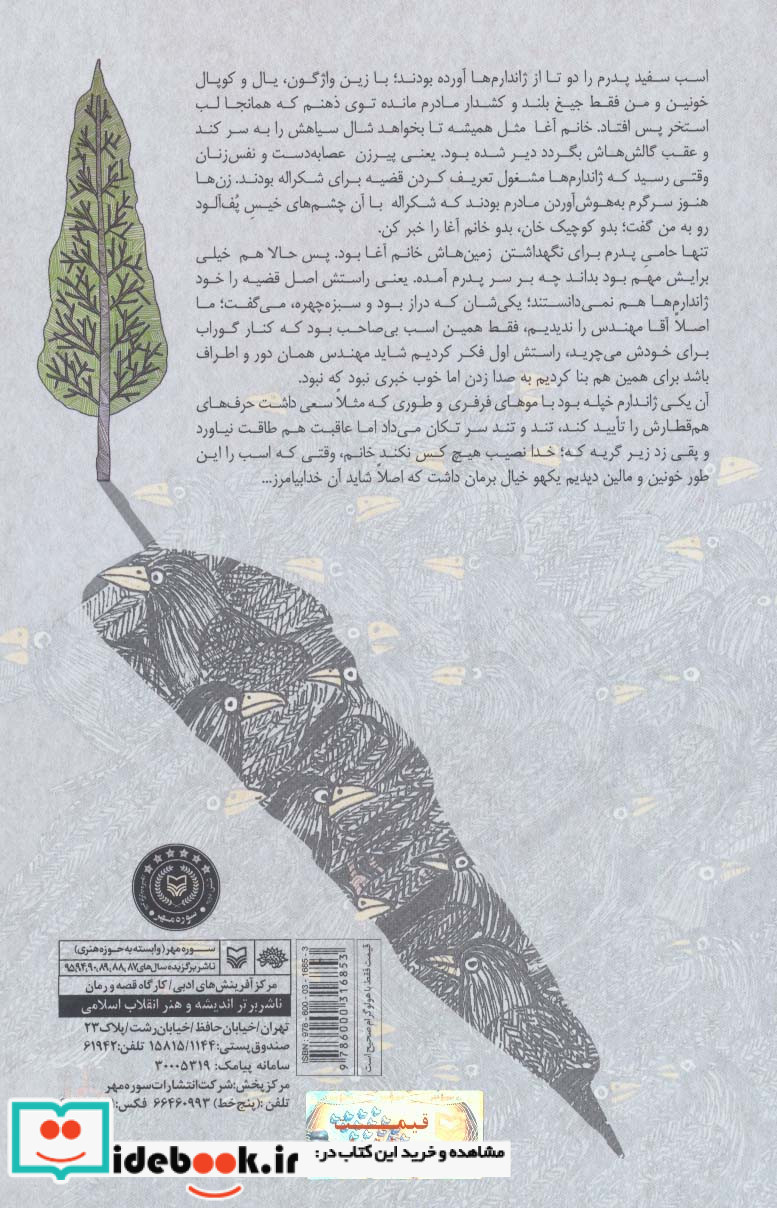 اسب سفید پدرم را دو تا از ژاندارم‌ها آورده بودند؛ با زین واژگون، یال و کوپال
خونین و من فقط جیغ بلند و کشدار مادرم مانده توی ذهنم که همانجا لب
استخر پس افتاد. خانم آغا مثل همیشه تا بخواهد شال سیاهش را به سر کند
و عقب گالش‌هاش بگردد دیر شده بود. یعنی پیرزن عصابه‌دست و نفس‌زنان
وقتی رسید که ژاندارم‌ها مشغول تعریف کردن قضیه برای شکراله بودند. زن‌ها
هنوز سرگرم به‌هوش‌آوردن مادرم بودند که شکراله با آن چشم‌های خیسِ پُف‌آلود
رو به من گفت؛ بدو کوچیک خان، بدو خانم آغا را خبر کن.
تنها حامیِ پدرم برای نگهداشتن زمین‌هاش خانم آغا بود. پس حالا هم خیلی
برایش مهم بود بداند چه بر سر پدرم آمده. یعنی راستش اصل قضیه را خود
ژاندارم‌ها هم نمی‌دانستند؛ یکی‌شان که دراز بود و سبزه‌چهره، می‌گفت؛ ما
اصلاً آقا مهندس را ندیدیم، فقط همین اسب بی‌صاحب بود که کنار گوراب
برای خودش می‌چرید، راستش اول فکر کردیم شاید مهندس همان دور و اطراف
باشد برای همین هم بنا کردیم به صدا زدن اما خوب خبری نبود که نبود.
آن یکی ژاندارم خپله بود با موهای فرفری و طوری که مثلاً سعی داشت حرف‌های
هم‌قطارش را تأیید کند، تند و تند سر تکان می‌داد اما عاقبت هم طاقت نیاورد
و پقی زد زیر گریه که؛ خدا نصیب هیچ کس نکند خانم، وقتی که اسب را این
طور خونین و مالین دیدیم یکهو خیال برمان داشت که اصلاً شاید آن خدابیامرز...
سوره مهر
سوره مهر (وابسته به حوزه هنری)
ناشر برگزیده سال‌های ۸۷، ۸۸، ۸۹، ۹۰، ۹۴، ۹۵
مرکز آفرینش‌های ادبی / کارگاه قصه و رمان
ناشر برتر اندیشه و هنر انقلاب اسلامی
تهران / خیابان حافظ / خیابان رشت / پلاک ۲۳
صندوق پستی: ۱۵۸۱۵/۱۱۴۴ تلفن: ۶۱۹۴۲
سامانه پیامک: ۳۰۰۰۵۳۱۹
مرکز پخش: شرکت انتشارات سوره مهر
تلفن: (پنج خط) ۶۶۴۶۰۹۹۳ فکس:
ISBN: 978-600-03-1685-3
9786000316853
قیمت فقط با هولوگرام صحیح است
قیمت
مشاهده و خرید این کتاب در:
idebook.ir